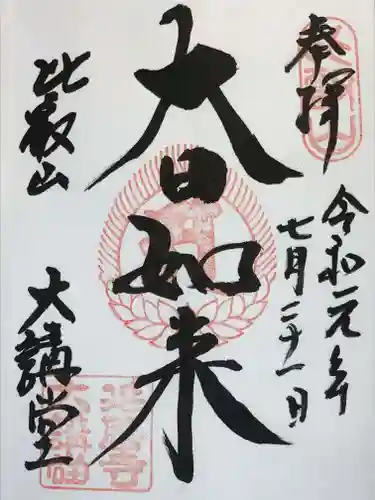 奉拝
令和元年
七月二十一日
大日如来
比叡山
大講堂